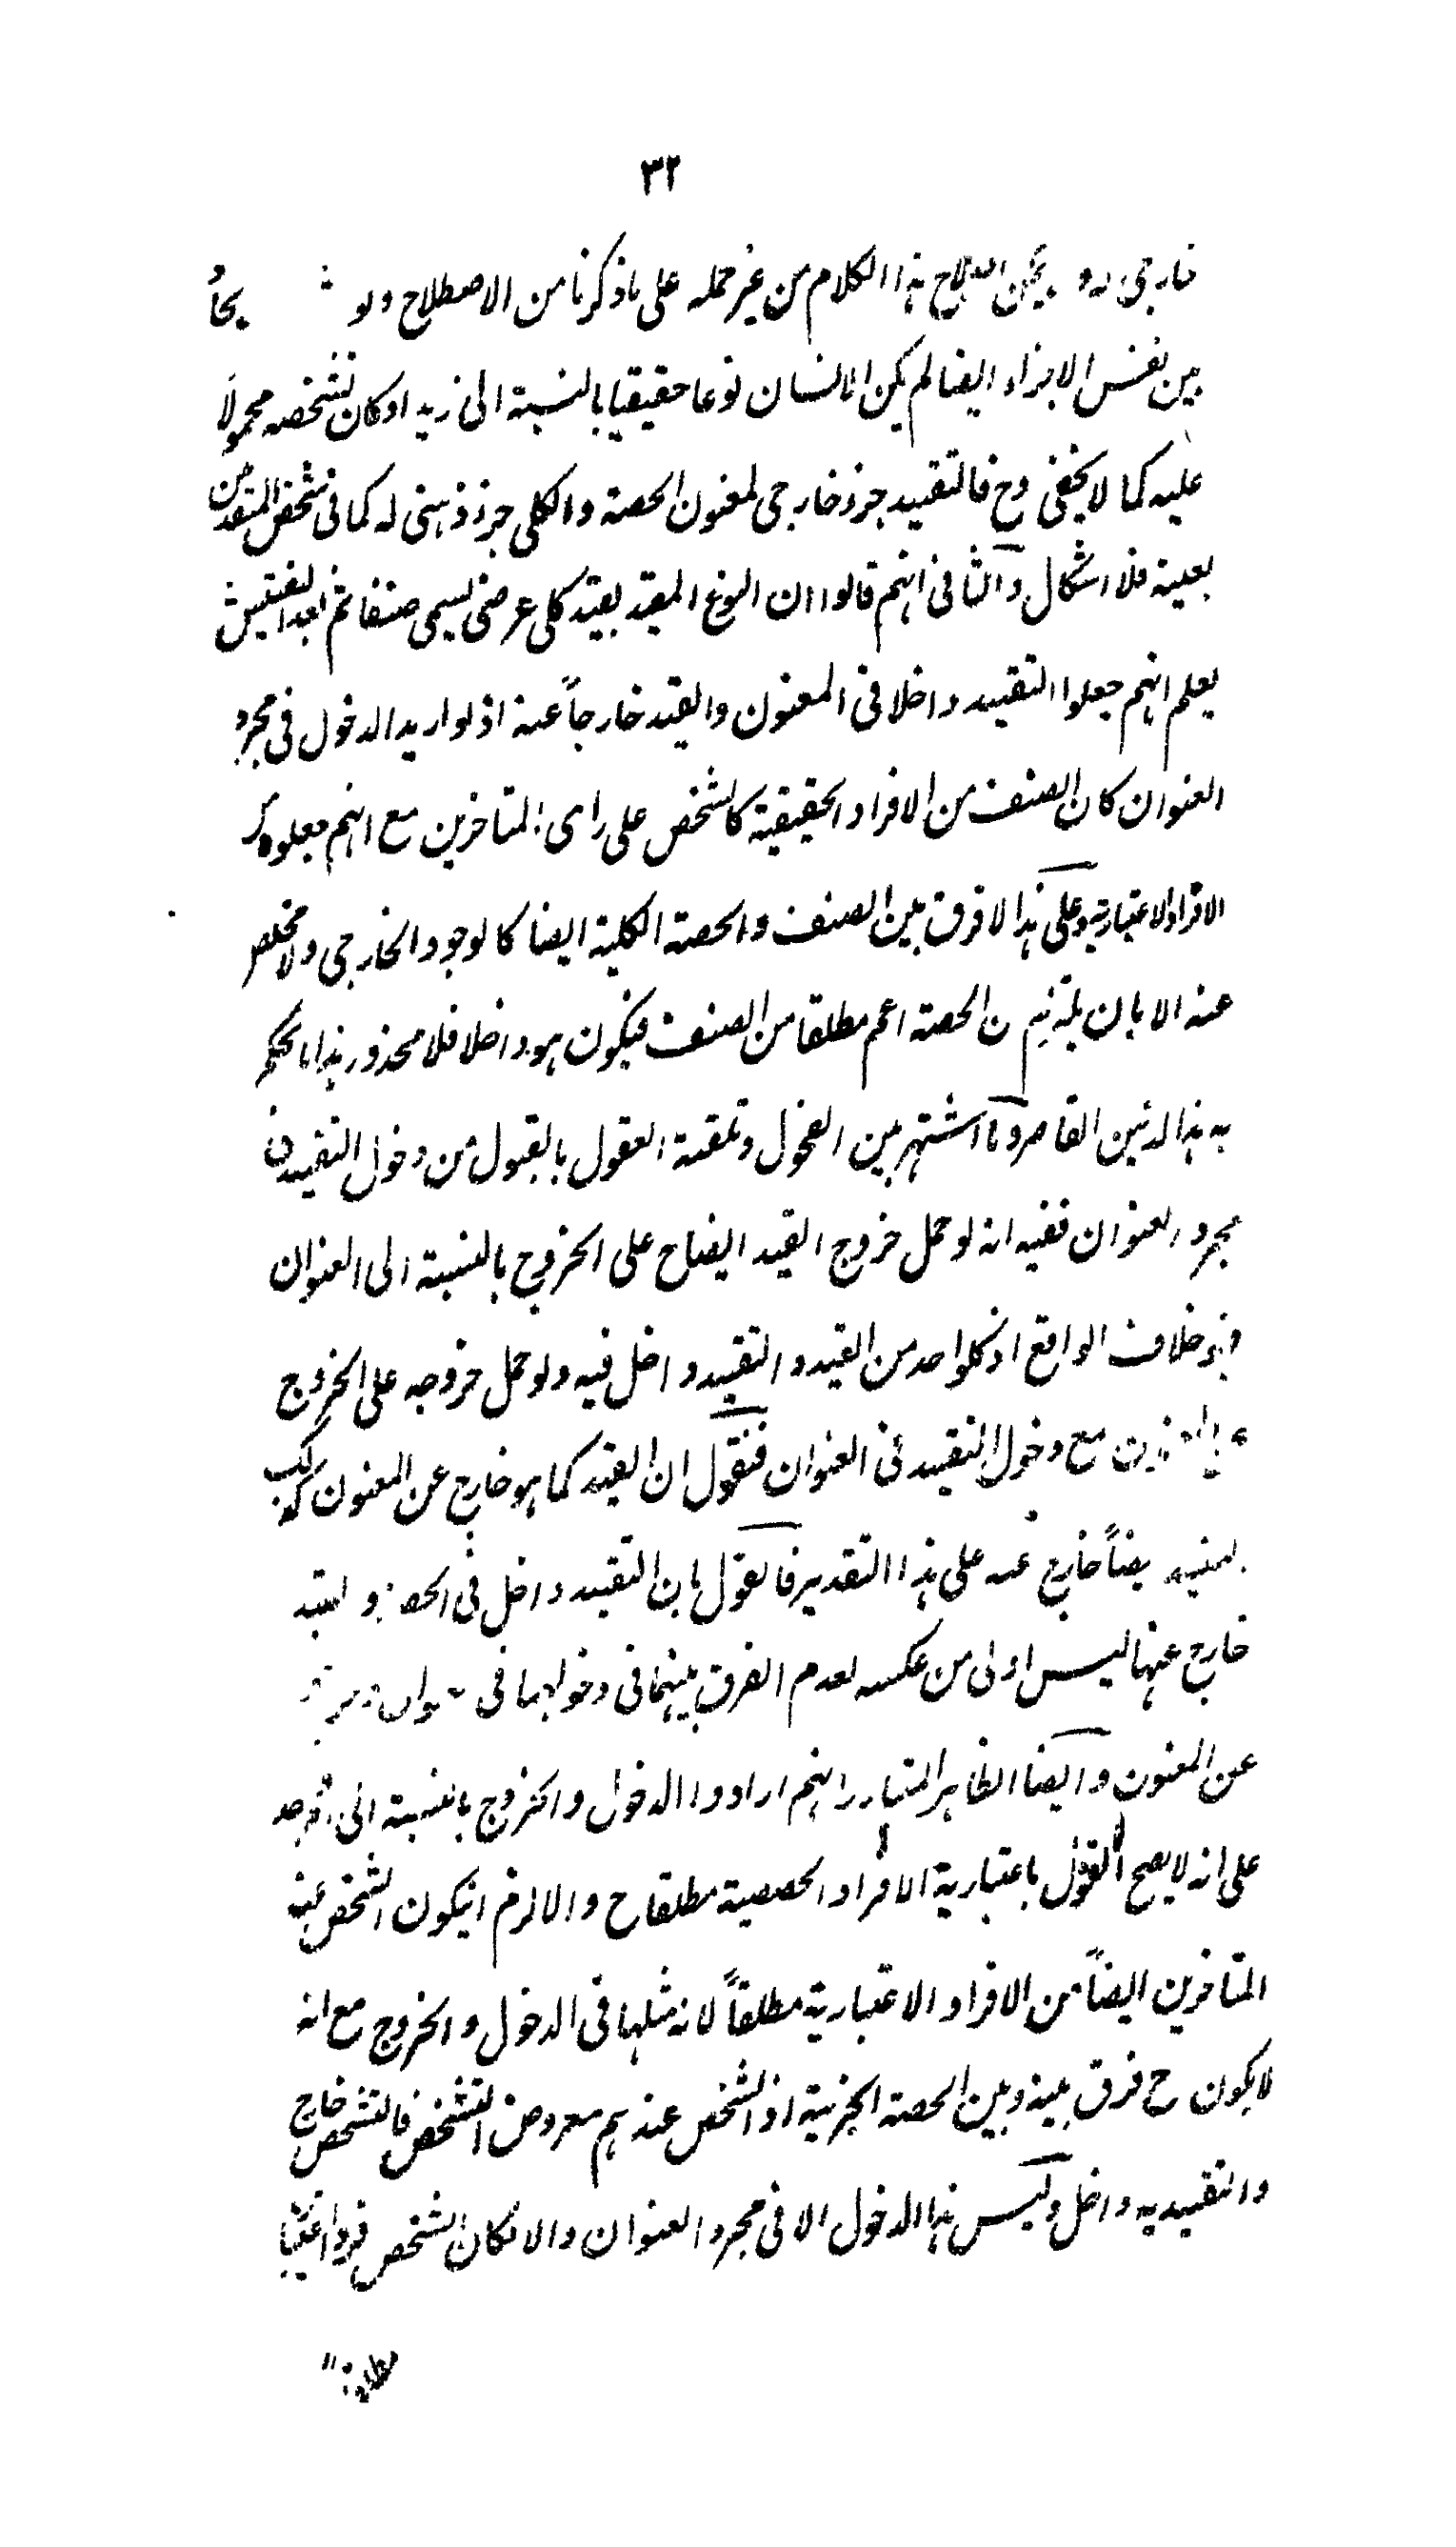 ٣٢
خارجي يمكن اصلاح هذا الكلام من غير حمله على ما ذكرنا من الاصطلاح ولو
بين نفس الاجزاء ايضا لم يكن الانسان نوعا حقيقيا بالنسبة الى زيد اذ كان تشخصه محمولاً
عليه كما لا يخفى وح فالتقييد جزء خارجي لمعنون الحصة والكلي جزء ذهني له كما في شخص المتقدمين
بعينه فلا اشكال والثاني انهم قالوا ان النوع المقيد بقيد كلي عرضي يسمى صنفا ثم بعد التفتيش
يعلم انهم جعلوا التقييد داخلا في المعنون والقيد خارجاً عنه اذ لو اريد الدخول في مجرد
العنوان كان الصنف من الافراد الحقيقية كالشخص على راى المتاخرين مع انهم جعلوه من
الافراد الاعتبارية وعلى هذا لا فرق بين الصنف والحصة الكلية ايضا كالوجود الخارجي ولا مخلص
عنه الا بان يلتزم ان الحصة اعم مطلقا من الصنف فيكون هو داخلا فلا محذور هذا ما يحكم
به هذا الذهن القاصر وما اشتهر بين الفحول وتلقته العقول بالقبول من دخول التقييد في
مجرد العنوان ففيه انه لو حمل خروج القيد ايضا ح على الخروج بالنسبة الى العنوان
فهو خلاف الواقع اذ كلواحد من القيد والتقييد داخل فيه ولو حمل خروجه على الخروج
عن المعنون مع دخول التقييد في العنوان فنقول ان القيد كما هو خارج عن المعنون كذلك
التقييد ايضاً خارج عنه على هذا التقدير فالقول بان التقييد داخل في الحصة والقيد
خارج عنها ليس اولى من عكسه لعدم الفرق بينهما في دخولهما في
عن المعنون وايضا الظاهر المتبادر انهم ارادوا الدخول والخروج بالنسبة الى
على انه لا يصح القول باعتبارية الافراد الحصصية مطلقا ح والا لزم ان يكون الشخص عند
المتاخرين ايضاً من الافراد الاعتبارية مطلقاً لانه مثلها في الدخول والخروج مع انه
لا يكون ح فرق بينه وبين الحصة الجزئية اذ الشخص عندهم معروض التشخص فالتشخص خارج
والتقييد به داخل وليس هذا الدخول الا في مجرد العنوان والا لكان الشخص فردا اعتباريا